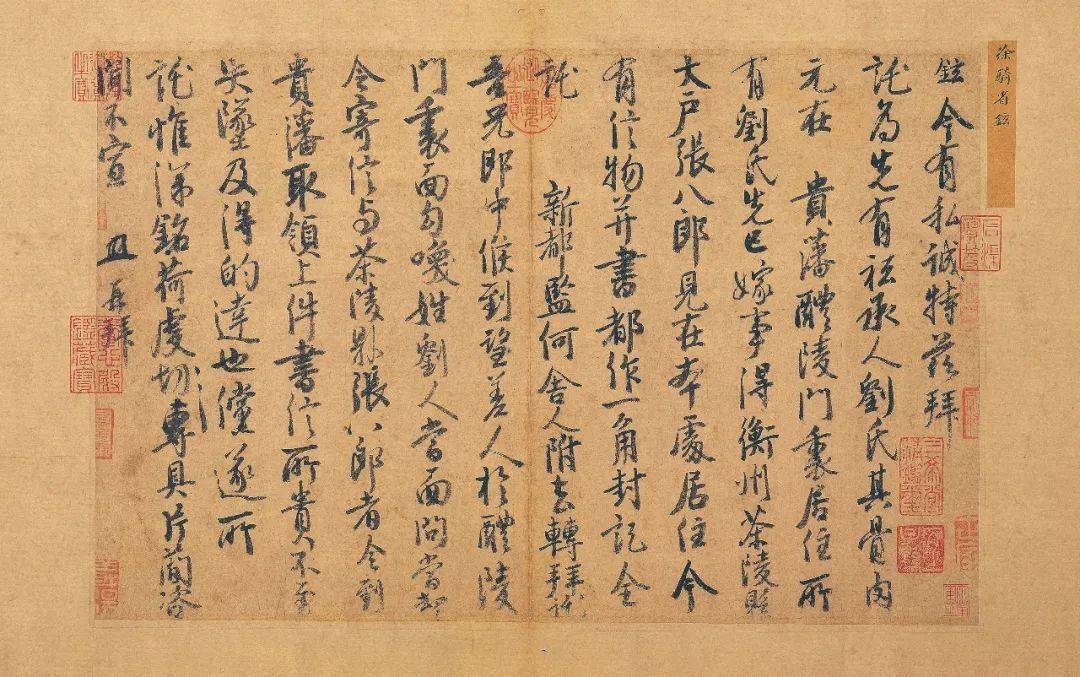 徐騎省鉉
鉉今有私誠特茲拜
託為先有祗承人劉氏其骨肉
元在 貴藩醴陵門裏居住所
有劉氏先已嫁事得衡州茶陵縣
大戶張八郎見在本處居住今
有信物并書都作一角封記全
託 新都監何舍人附去轉拜託
吾兄郎中候到望差人於醴陵
門裏面勾喚姓劉人當面問當却
令寄信与茶陵縣張八郎者令到
貴藩取領上件書信所貴不至
失墜及得的達也儻遂所
託惟深銘荷虔切專具片簡咨
聞不宣 且再拜